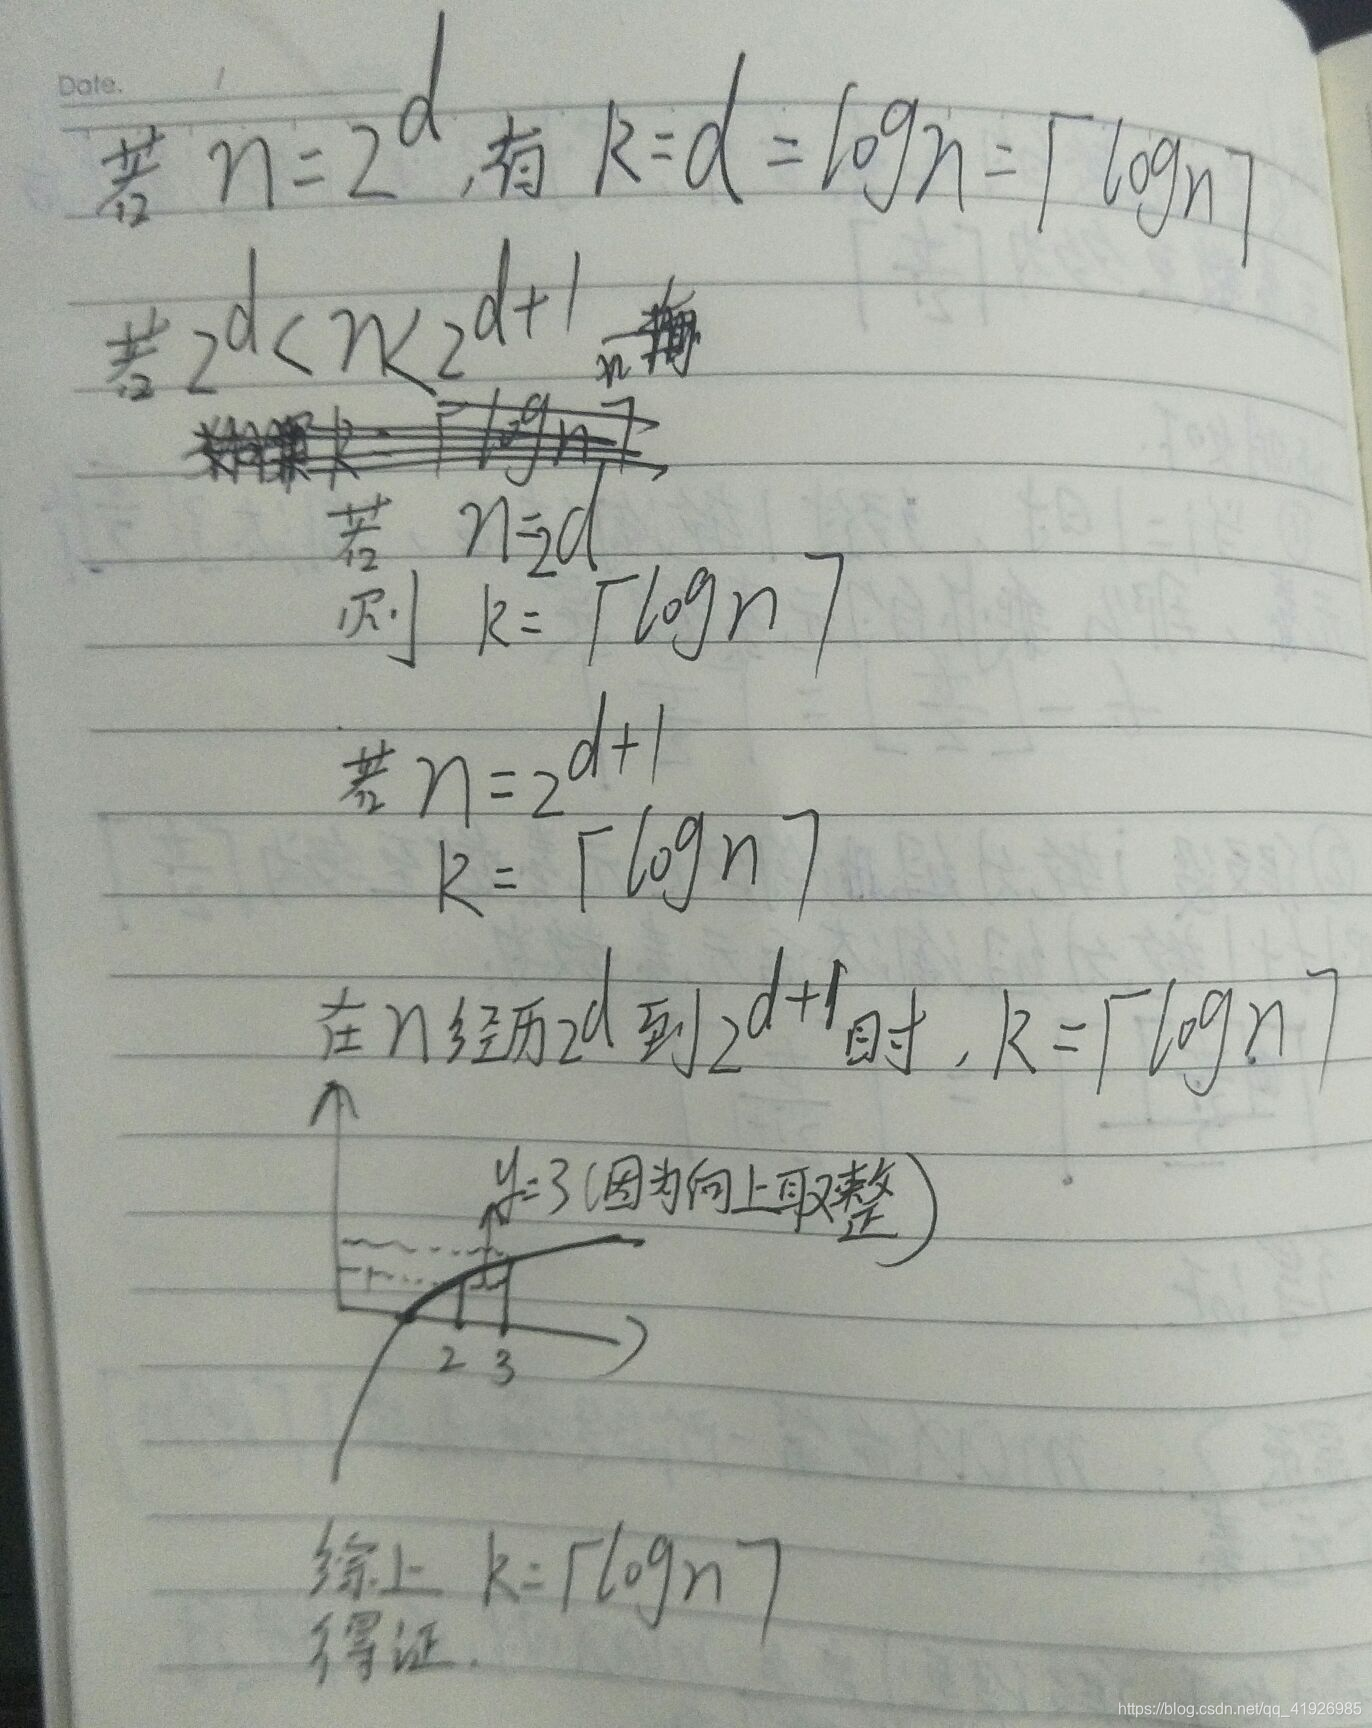 Date. /
若 n=2^d, 有 k=d=logn=⌈logn⌉
若 2^d<n<2^{d+1} n
k=⌈logn⌉
若 n=2d
则 k=⌈logn⌉
若 n=2^{d+1}
k=⌈logn⌉
在n经历2^d到2^{d+1}时, k=⌈logn⌉
y=3(因为向上取整)
2 3
综上 k=⌈logn⌉
得证.
https://blog.csdn.net/qq_41926985